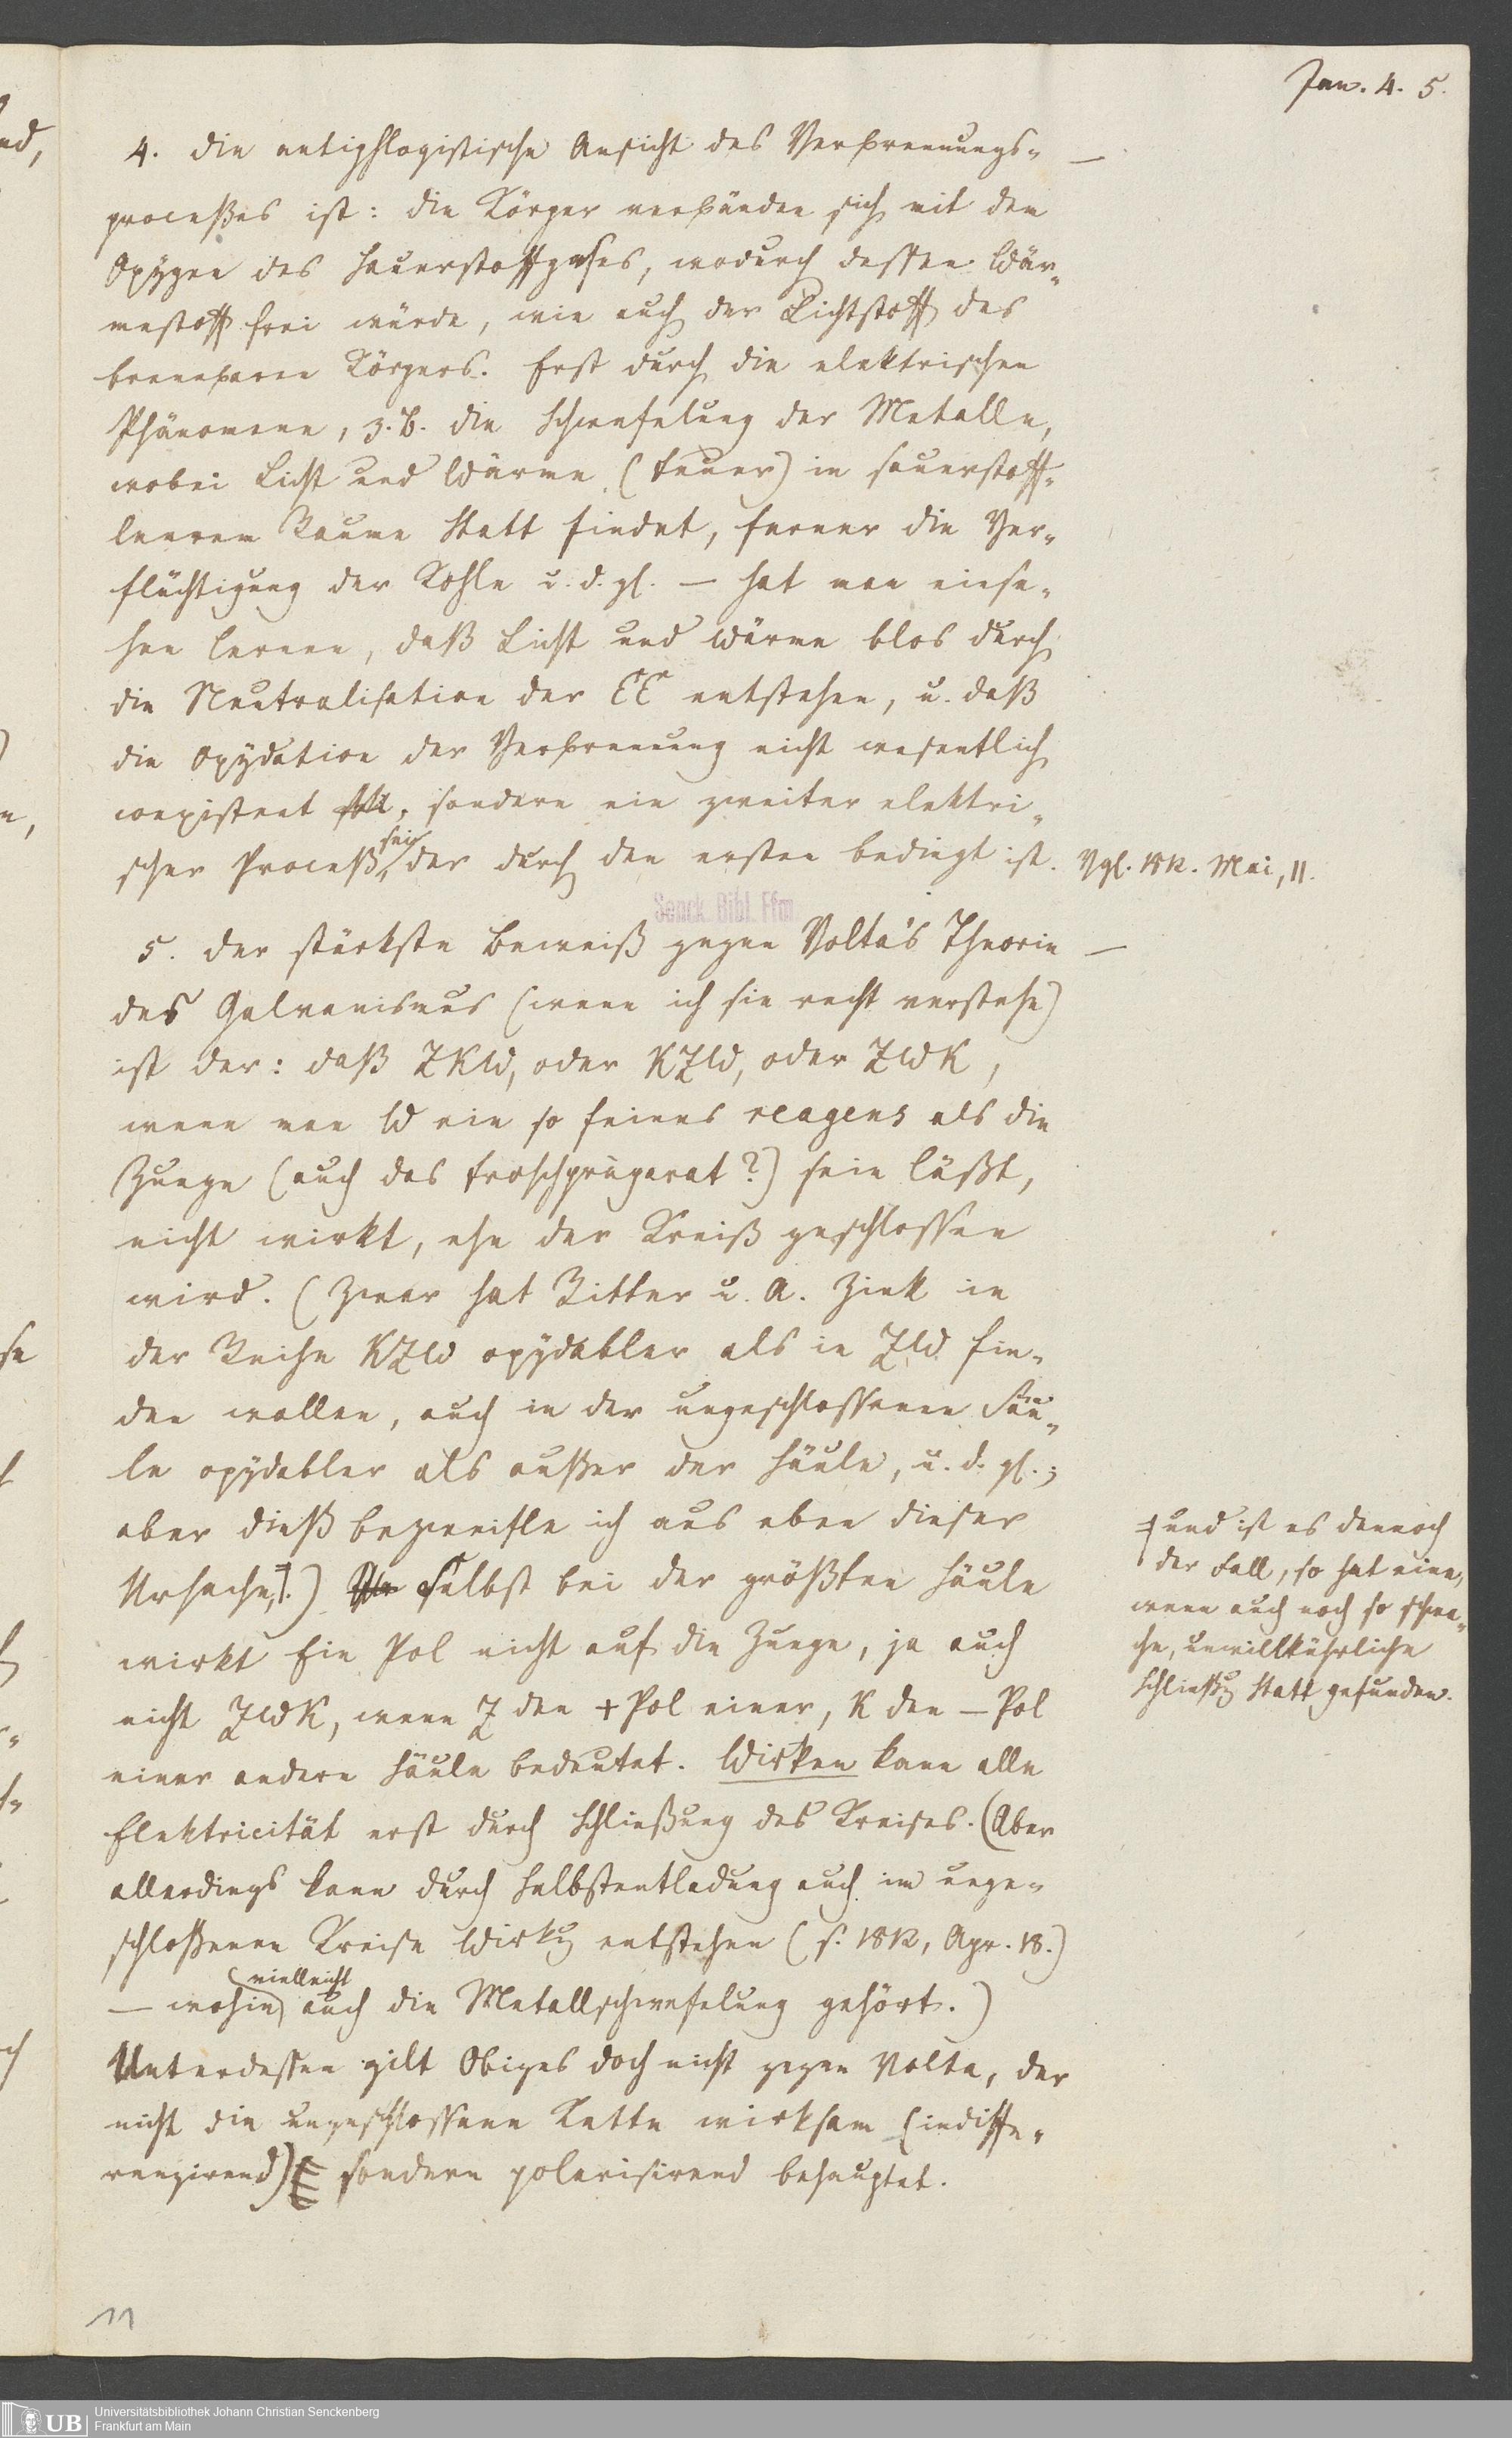 Jan. 4. 5.
4. Die antiphlogistische Ansicht des Verbrennungs-
processes ist: die Körper verbänden sich mit dem
Oxygen des Sauerstoffgases, wodurch dessen Wär-
mestoff frei würde, wie auch der Lichtstoff des
brennbaren Körpers. Erst durch die elektrischen
Phänomene, z. B. die Schwefelung der Metalle,
wobei Licht und Wärme (Feuer) in sauerstoff-
leerem Raume Statt findet, ferner die Ver-
flüchtigung der Kohle u. d. gl. — hat man einse-
hen lernen, daß Licht und Wärme blos durch
die Neutralisation der EE entstehen, u. daß
die Oxydation der Verbrennung nicht wesentlich
coexistent, sondern ein zweiter elektri-
scher Proceß sei, der durch den ersten bedingt ist.
Vgl. 1812. Mai, 11.
5. Der stärkste Beweiß gegen Volta's Theorie
des Galvanismus (wenn ich sie recht verstehe)
ist der: daß ZKW, oder KZW, oder ZWK,
wenn man W ein so feines reagens als die
Zunge (auch das Froschpräparat?) sein läßt,
nicht wirkt, ehe der Kreiß geschlossen
wird. (Zwar hat Ritter u. A. Zink in
der Reihe KZW oxydabler als in ZW fin-
den wollen, auch in der ungeschlossenen Säu-
le oxydabler als ausser der Säule, u. d. gl.;
aber dieß bezweifle ich aus eben dieser
Ursache,‡.) Selbst bei der größten Säule
wirkt Ein Pol nicht auf die Zunge, ja auch
nicht ZWK, wenn Z den + Pol einer, K den — Pol
einer andern Säule bedeutet. Wirken kann alle
Elektricität erst durch Schließung des Kreises. (Aber
allerdings kann durch Selbstentladung auch im unge-
schlossenen Kreise Wirkg entstehen (s. 1812, Apr. 18.)
— wohin vielleicht auch die Metallschwefelung gehört.)
Unterdessen gilt Obiges doch nicht gegen Volta, der
nicht die ungeschlossene Kette wirksam (indiffe-
renzirend) sondern polarisirend behauptet.
‡ und ist es dennoch
der Fall, so hat eine,
wenn auch noch so schwa-
che, unwillkührliche
Schließg Statt gefunden.
Senck. Bibl. Ffm
11
UB
Universitätsbibliothek Johann Christian Senckenberg
Frankfurt am Main